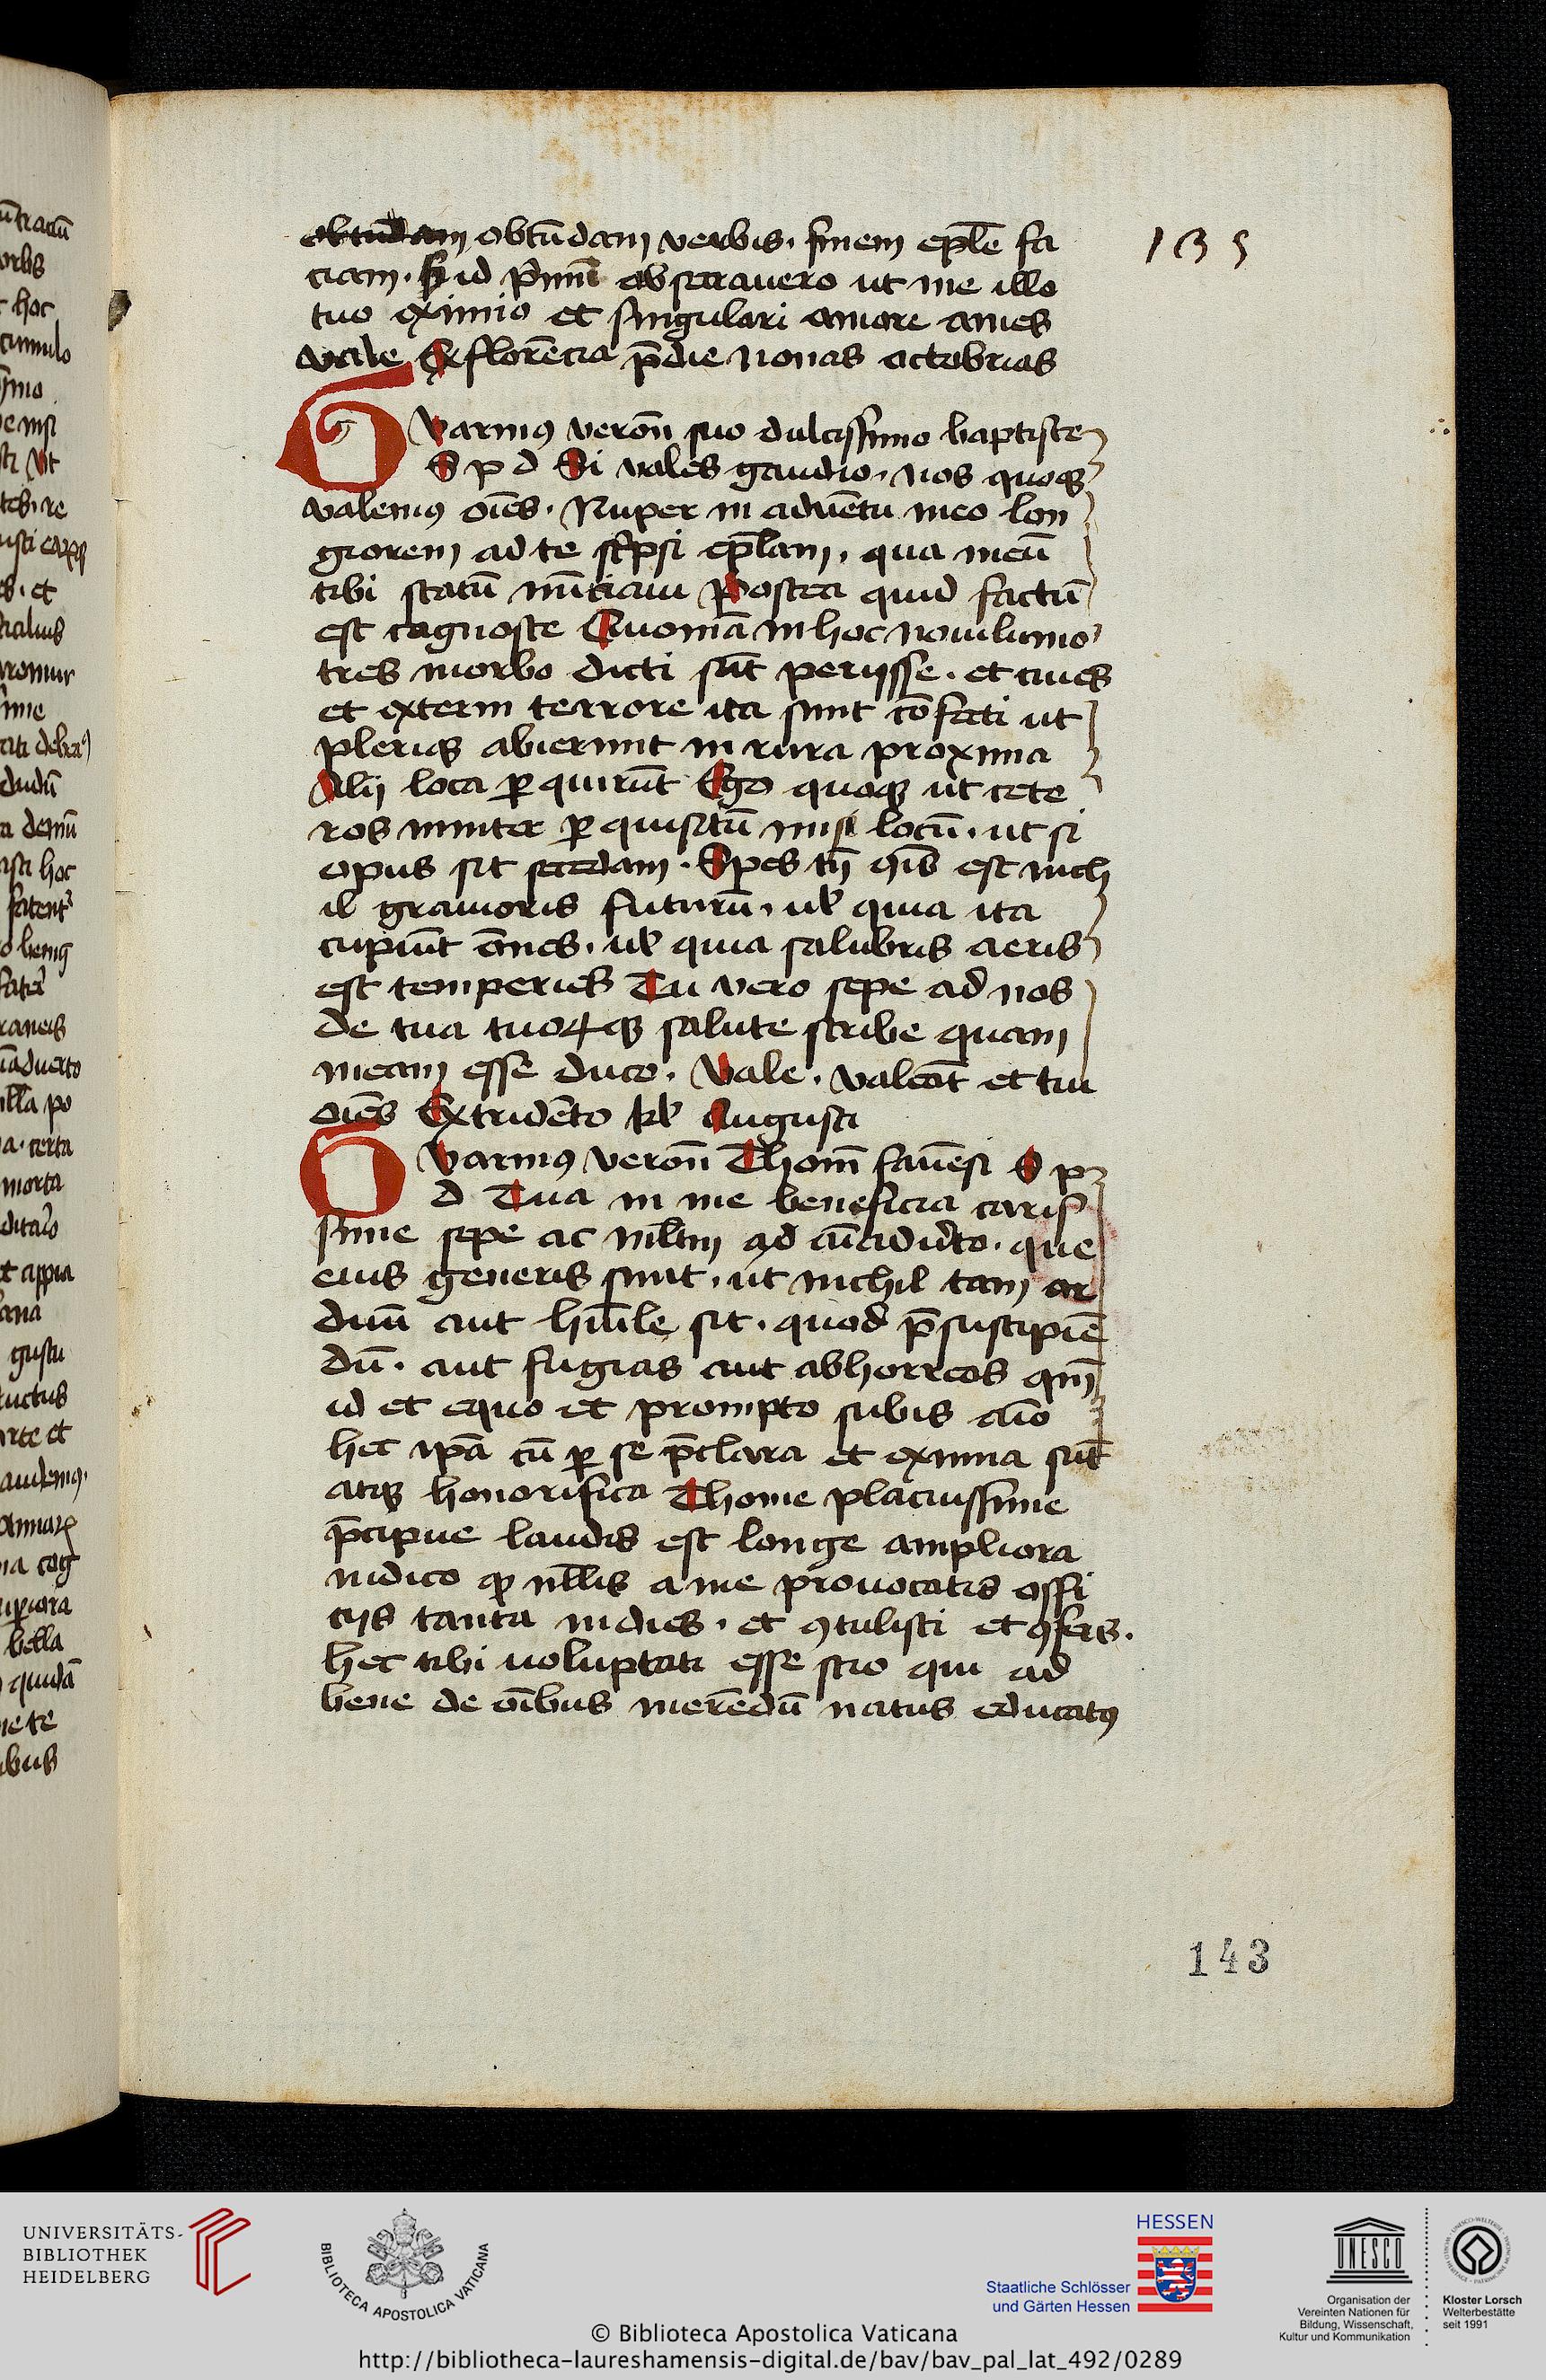 obtūdam obtūdam verbis. finem ep̄le fa
ciam. si id p̄mū obsecravero ut me illo
tuo eximio et singulari amore ames
vale Ex florēcia p̄die nonas octobrias
Gvarinꝰ veroñ suo dulcissimo baptiste
S p d Si vales gaudio. nos quoqꝫ
valemꝰ oīēs. Nuper in advētu meo lon
giorem ad te sc̄psi ep̄lam, qua meū
tibi statū nūtiavi Postea quid factū
est cognosce Quoniā in hoc novilunio
tres morbo dicti sūt periisse. et cives
et externi terrore ita sunt cōfecti ut
pleriqꝫ abierunt in rura proxima
Alij loca ꝑquirūt Ego quoqꝫ ut cete
ros imiter ꝑquisitū misi locū. ut si
opus sit secedam. Spes tn̄ oīb est nich
il gravioris futurū, ul̄ quia ita
cupiūt om̄es. ul̄ quia salubris aeris
est temperies Tu vero sepe ad nos
de tua tuoꝝqꝫ salute scribe quam
meam esse duco. Vale. valeāt et tui
oīēs Ex tridēto kl̄ Augusti
Gvarinꝰ veroñ Thom̄ favēsi S p
d Tua in me beneficia caris
sime sepe ac ml̄tm ad aīadv̄to. que
eius generis sunt. ut nichil tam ar
duū aut hūīle sit. quod p̄ suscipiē
dū. aut fugias aut abhorreas qm̄
id et equo et prompto subis aīo
hec ip̄a cū ꝑ se p̄clara et eximia sūt
atqꝫ honorifica Thome placuissime
p̄cipue laudis est longe ampliora
iudico qꝫ nl̄lis a me provocatis offi
ciis tanta indies. et ꝯtulisti et ꝯfers.
hec tibi voluptati esse scio qui ad
bene de oībus merēdū natus educatꝰ
135
143
UNIVERSITÄTS-
BIBLIOTHEK
HEIDELBERG
BIBLIOTECA APOSTOLICA VATICANA
HESSEN
Staatliche Schlösser
und Gärten Hessen
UNESCO
Organisation der
Vereinten Nationen für
Bildung, Wissenschaft,
Kultur und Kommunikation
Kloster Lorsch
Welterbestätte
seit 1991
© Biblioteca Apostolica Vaticana
http://bibliotheca-laureshamensis-digital.de/bav/bav_pal_lat_492/0289